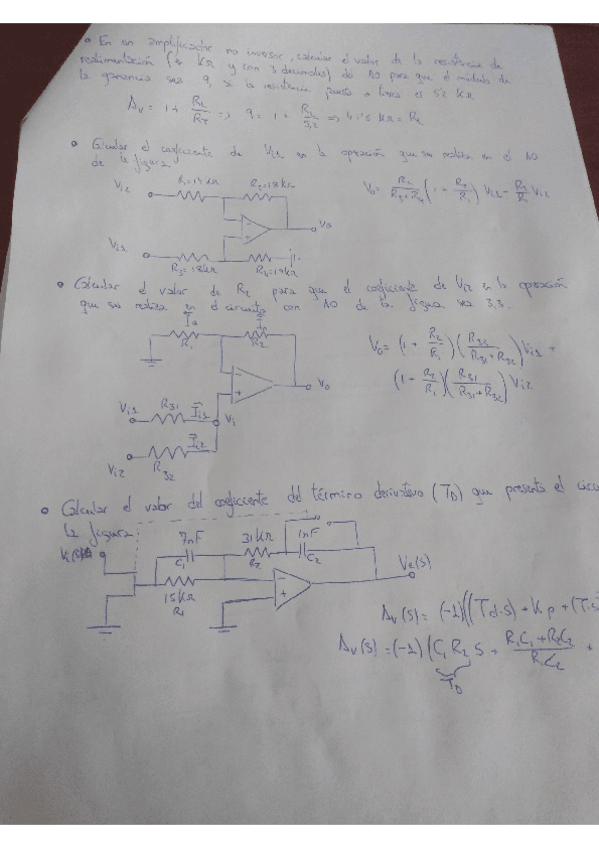 • En un amplificador no inversor, calcular el valor de la resistencia de
realimentación (en KΩ y con 3 decimales) del AO para que el módulo de
la ganancia sea 9, si la resistencia puesta a tierra es 5'2 KΩ
Av = 1 + R2/R1 => 9 = 1 + R2/5,2 => 41'5 KΩ = R2
• Calcular el coeficiente de Vi2 en la operación que se realiza en el AO
de la figura
Vi2 R1=14kΩ R2=18kΩ
V0= R4/R3+R4 (1 + R2/R1) Vi1 - R2/R1 Vi2
- + V0
Vi1
R3=18kΩ R4=19kΩ
• Calcular el valor de R2 para que el coeficiente de Vi2 en la operación
que se realiza en el circuito con AO de la figura sea 3,3.
R1 R2
V0= (1 + R2/R1)(R32/R31+R32)Vi1 +
(1 + R2/R1)(R31/R31+R32)Vi2
- + V0
Vi1 R31 Ii1 Vi
Vi2 R32 Ii2
• Calcular el valor del coeficiente del término derivativo (TD) que presenta el circu
la figura
7nF 31KΩ 1nF
C1 R2 C2
15KΩ
R1
- +
Av(s)= (-1)((Td·s) + Kp + (T·s
Av(s)= (-1)(C1 R2 S + R1C1+R2C2/R1C2 +
TD